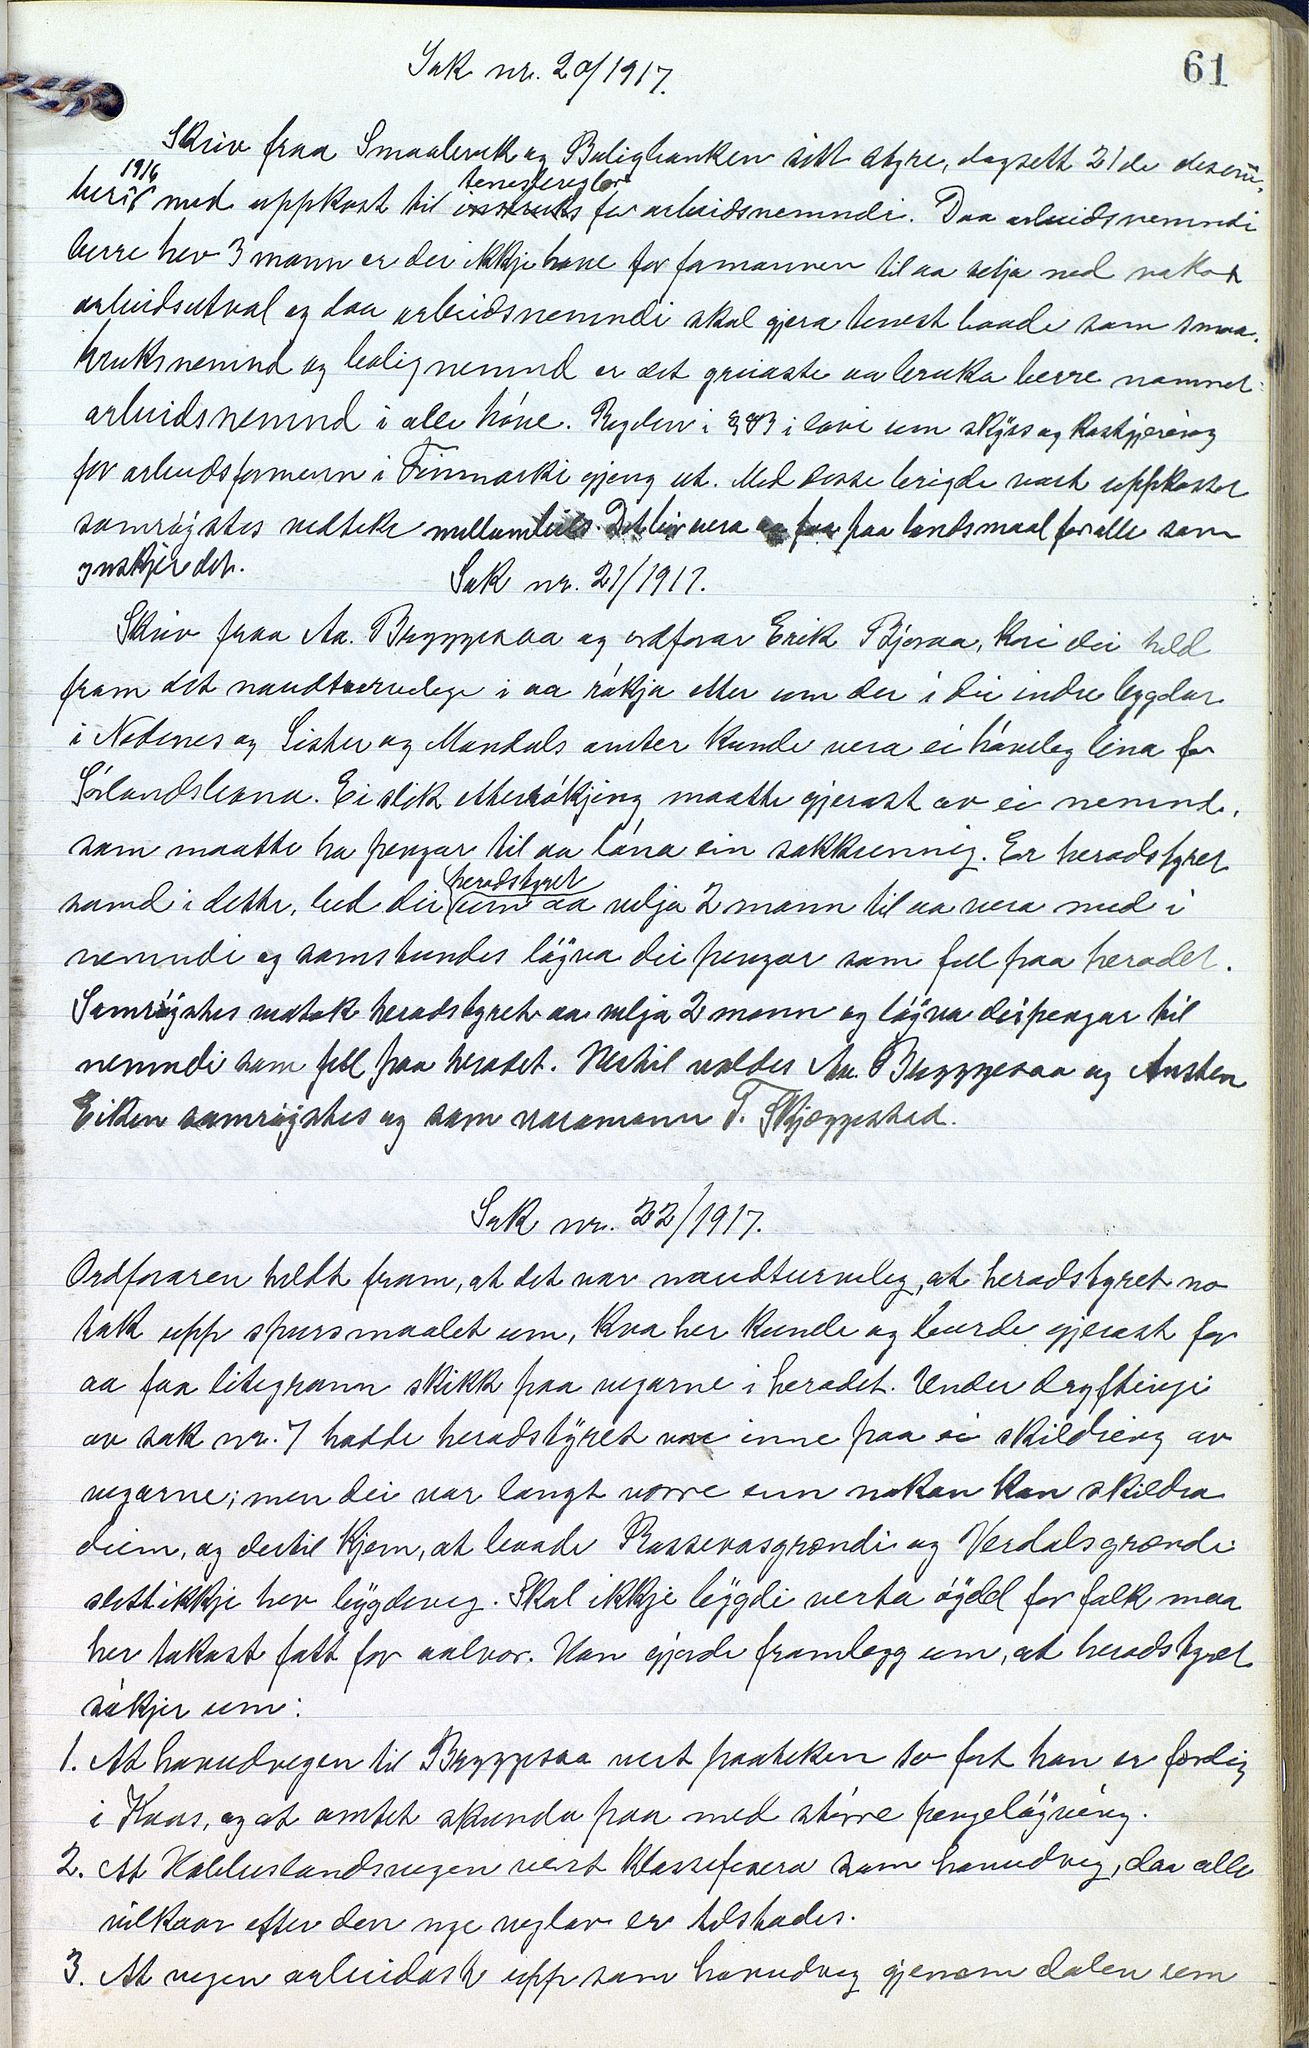 61
Sak nr. 20/1917.
Skriv fraa Smaabruk og Boligbanken sitt styre, dagsett 21de desem-
1916 tenestereglar
beri med uppkast til instruks for arbeidsnemndi. Daa arbeidsnemndi
berre hev 3 mann er dei ikkje høve for formannen til aa velja ned nokot
arbeidsutval og daa arbeidsnemndi skal gjera tenest baade som smaa-
bruksnemnd og bolignemnd er det greiaste aa bruka berre namnet:
arbeidsnemnd i alle høve. Reglen i § 13 i lovi um skyss og kostgjering
for arbeidsformenn i Finmarki gjeng ut. Med desse brigde vart uppkastet
samrøystes vedteke mellombils. Det bør vera aa faa paa landsmaal for alle som
ynskjer det.
Sak nr. 21/1917.
Skriv fraa Aa. Byggesaa og ordforar Erik Bjoraa, kor dei held
fram det naudturvelege i aa røkja etter um der i dei indre bygdar
i Nedenes og Lister og Mandals amter kunde vera ei høveleg lina for
Sørlandsbana. Ei slik etterrøkjing maatte gjerast av ei nemnd,
som maatte ha pengar til aa løna ein sakkunnig. Er heradstyret
heradstyret
samd i dette, bed dei um aa velja 2 mann til aa vera med i
nemndi og samstundes løyva dei pengar som fell paa heradet.
Samrøystes vedtok heradstyret aa velja 2 mann og løyva dei pengar til
nemndi som fell paa heradet. Hertil valdes Aa. Byggesaa og Austen
Eiken samrøystes og som varamann T. Skjeggestad.
Sak nr. 22/1917.
Ordføraren heldt fram, at det var naudturveleg, at heradstyret no
tok upp spursmaalet um, kva her kunde og burde gjerast for
aa faa litegrann skikk paa vegarne i heradet. Under dryftingi
av sak nr. 7 hadde heradstyret vore inne paa ei skildring av
vegarne; men dei var langt verre enn nokon kan skildra
deim, og dertil kjem, at baade Rossevasgrændi og Verdalsgrændi
slett ikkje hev bygdeveg. Skal ikkje bygdi verta øydd for folk maa
her takast fatt for aalvor. Han gjorde framlegg um, at heradstyret
søkjer um:
1. At hovudvegen til Byggesaa vert paateken so fort han er ferdig
i Kaas, og at amtet skunda paa med større pengeløyving.
2. At Hobbeslandsvegen vert klassefisera som hovudveg, daa alle
vilkaar efter den nye veglov er tilstades.
3. At vegen arbeidast upp som hovudveg gjenom dalen som